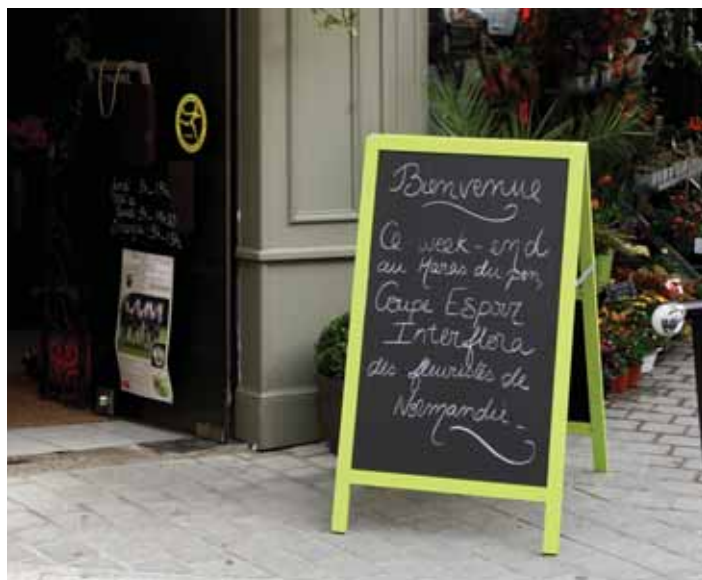 Bienvenue
Ce week-end
au Haras du pin,
Coupe Espoir
Interflora
des fleuristes de
Normandie.